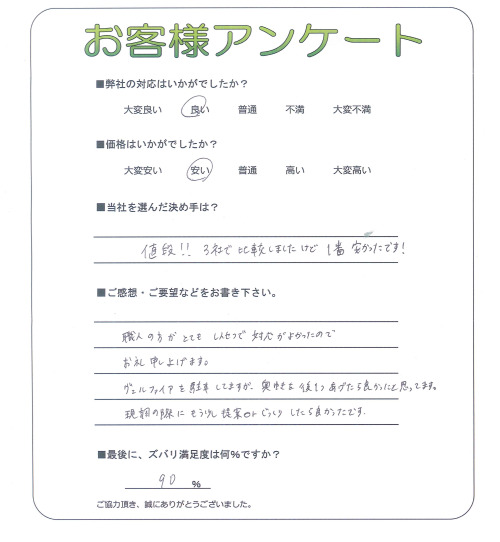 お客様アンケート
■弊社の対応はいかがでしたか？
大変良い 良い 普通 不満 大変不満
■価格はいかがでしたか？
大変安い 安い 普通 高い 大変高い
■当社を選んだ決め手は？
値段!! 3社で比較しましたけど 1番安かったです!
■ご感想・ご要望などをお書き下さい。
職人の方がとても しんせつで 対応がよかったので
お礼申し上げます。
ヴェルファイアを駐車してますが、奥行きを後もう あげたら良かったと思ってます。
現調の際に もう少し提案 じっくり したら良かったです.
■最後に、ズバリ満足度は何%ですか？
90 %
ご協力頂き、誠にありがとうございました。